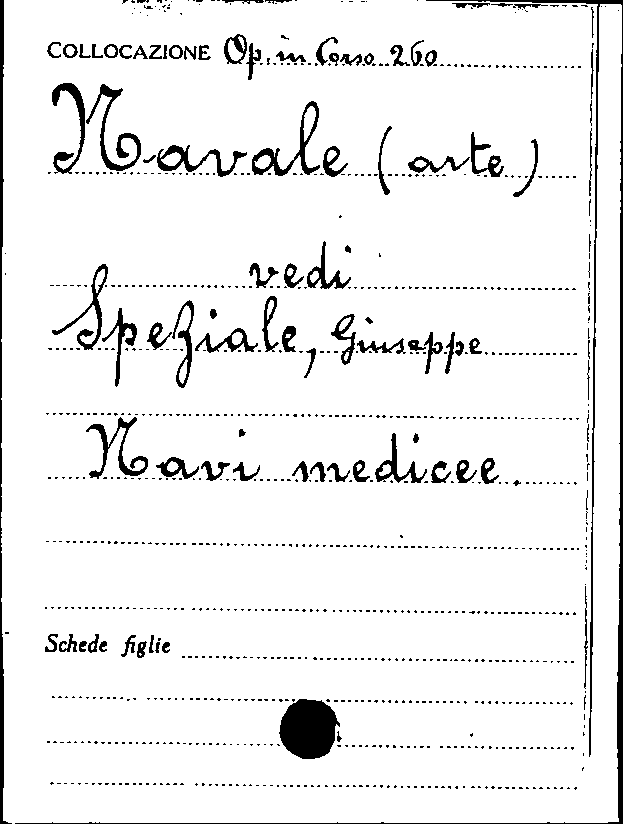 COLLOCAZIONE Op. in Corso 260
Navale (arte)
vedi
Speziale, Giuseppe
Navi medicee.
Schede figlie